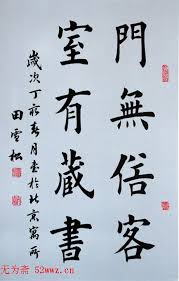 門無俗客
室有藏書
歲次丁亥春月書於北京寓所
田雪松
无为斋 52wwz.cn